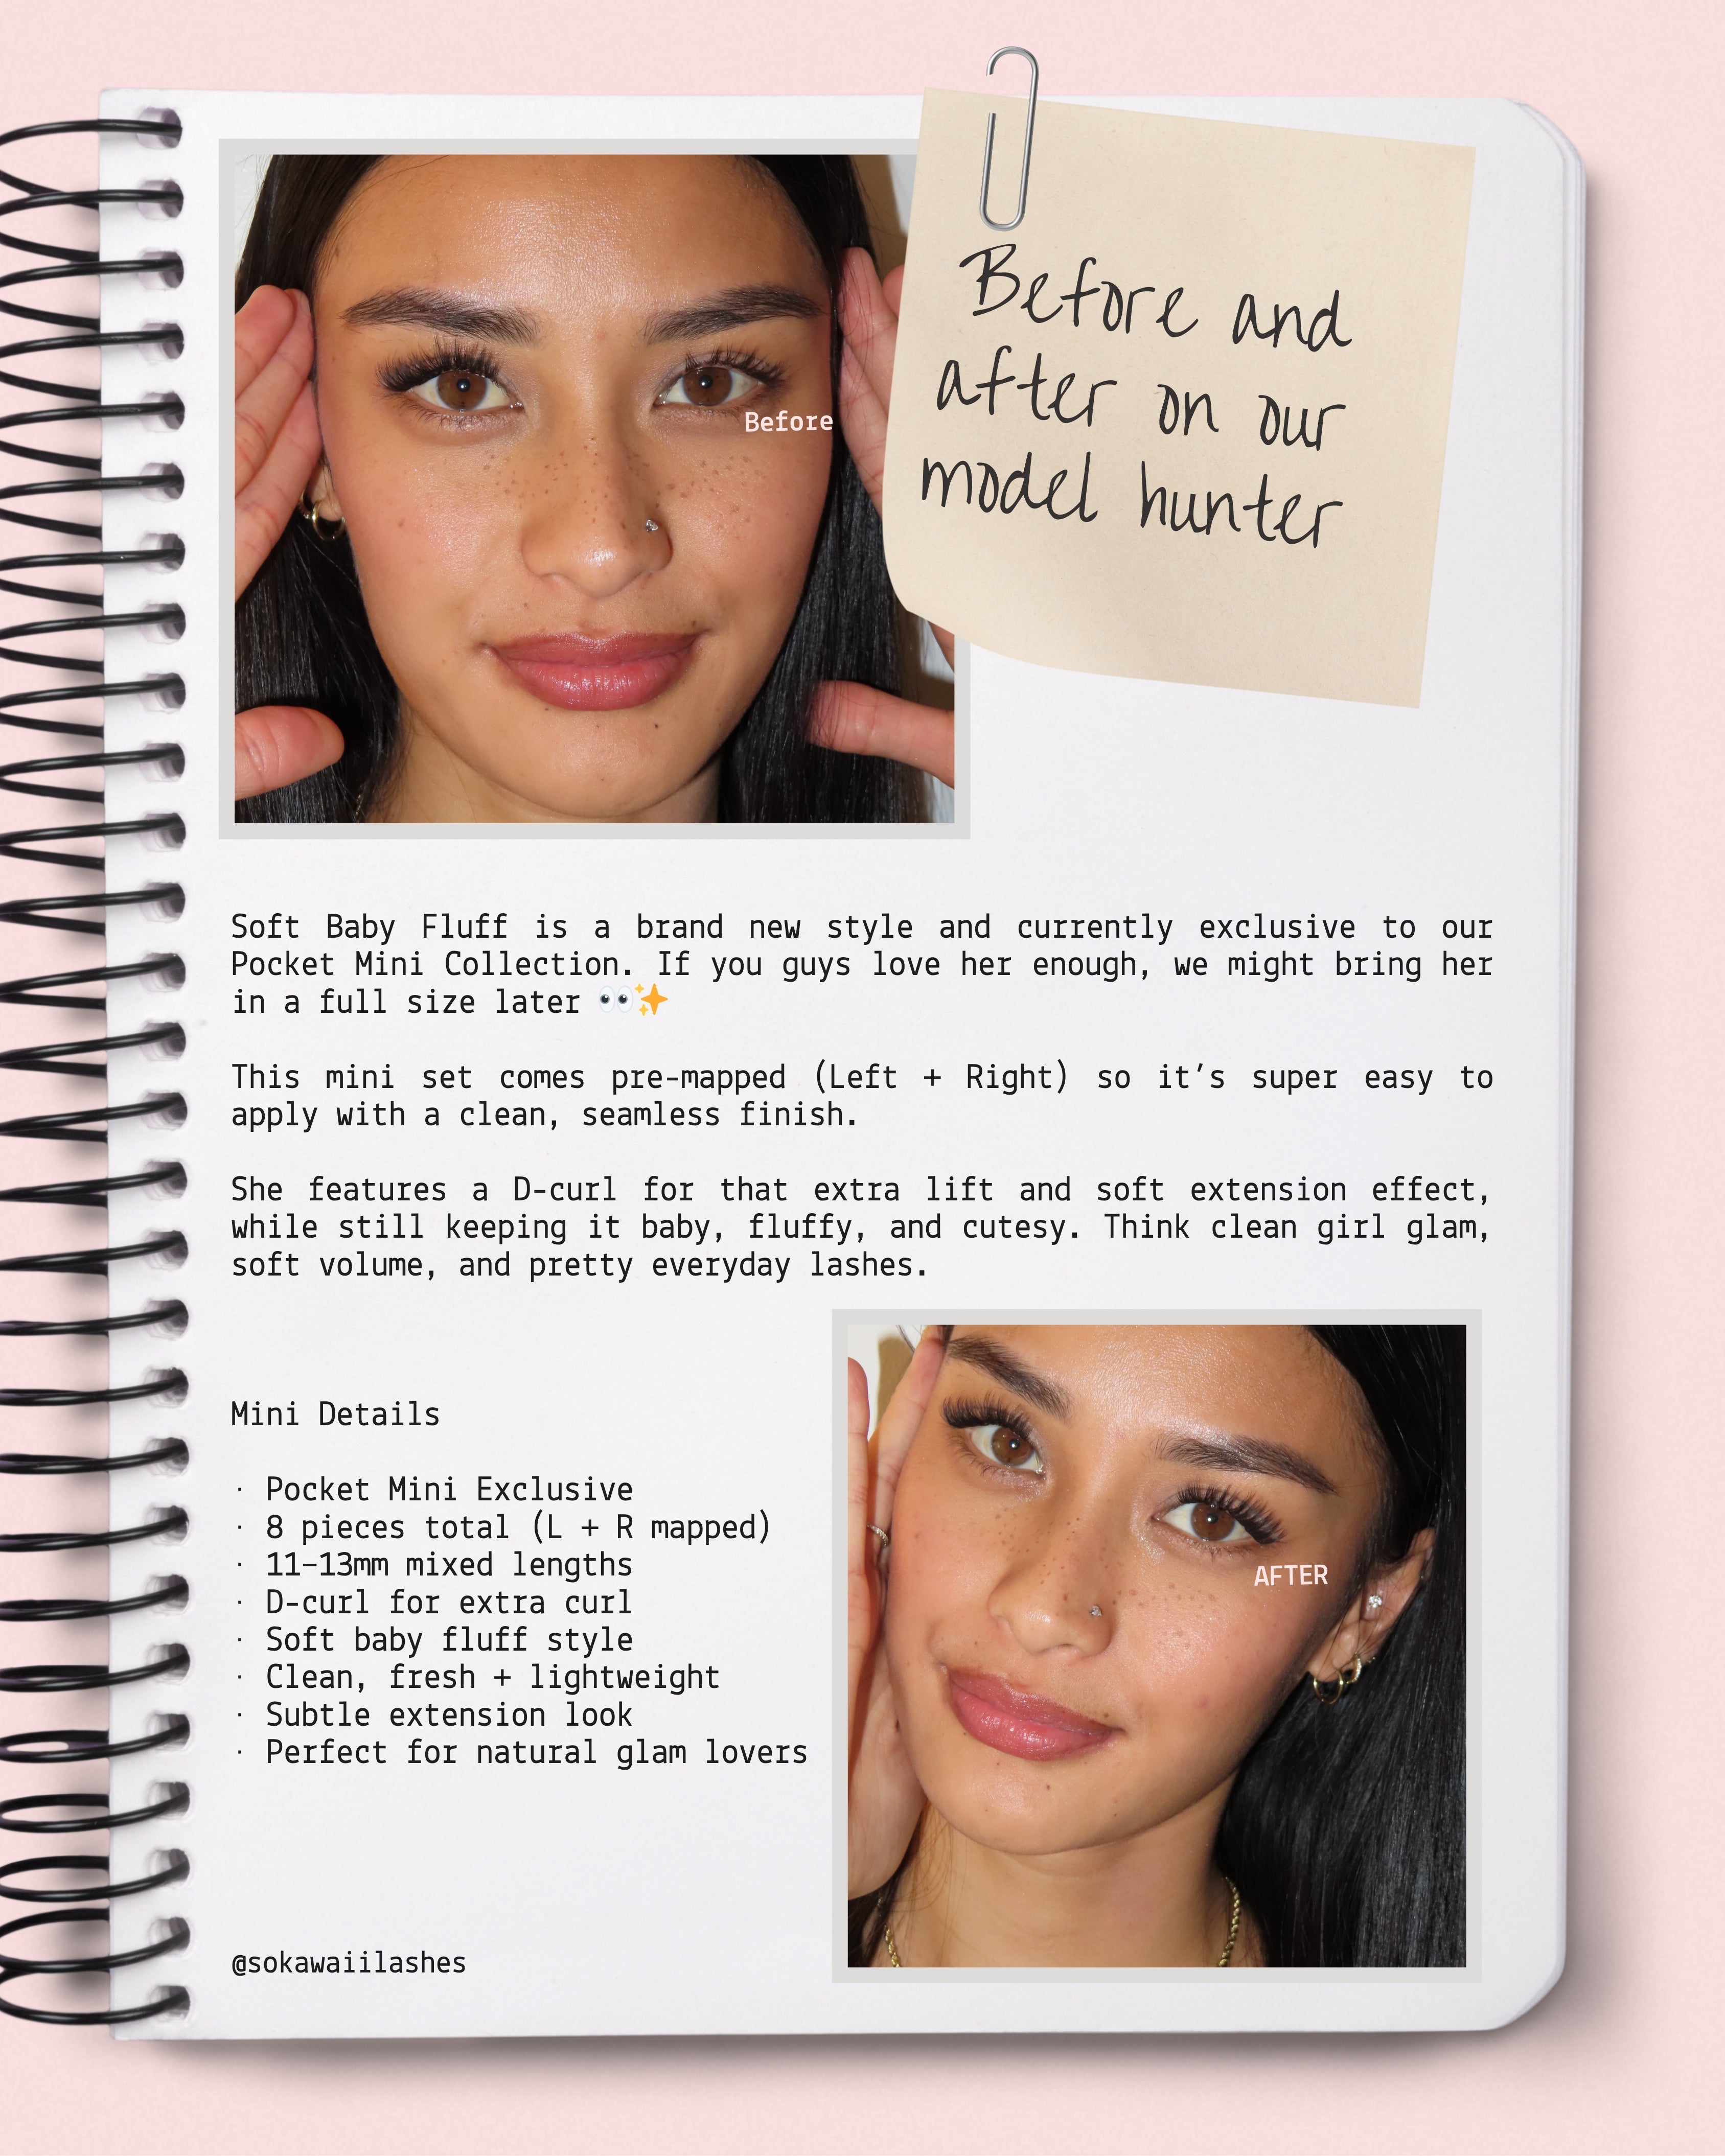 Before and
after on our
model hunter
Before
Soft Baby Fluff is a brand new style and currently exclusive to our
Pocket Mini Collection. If you guys love her enough, we might bring her
in a full size later 👀✨
This mini set comes pre-mapped (Left + Right) so it’s super easy to
apply with a clean, seamless finish.
She features a D-curl for that extra lift and soft extension effect,
while still keeping it baby, fluffy, and cutesy. Think clean girl glam,
soft volume, and pretty everyday lashes.
Mini Details
· Pocket Mini Exclusive
· 8 pieces total (L + R mapped)
· 11–13mm mixed lengths
· D-curl for extra curl
· Soft baby fluff style
· Clean, fresh + lightweight
· Subtle extension look
· Perfect for natural glam lovers
AFTER
@sokawaiilashes